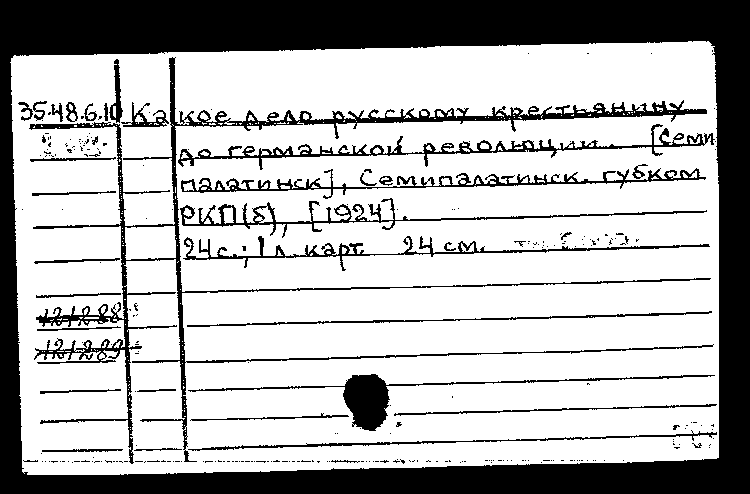 35.48.6.10 Какое дело русскому крестьянину
до германской революции. [Семи
палатинск], Семипалатинск. губком
РКП(б), [1924].
24 с.; 1 л. карт. 24 см.
121288
121289